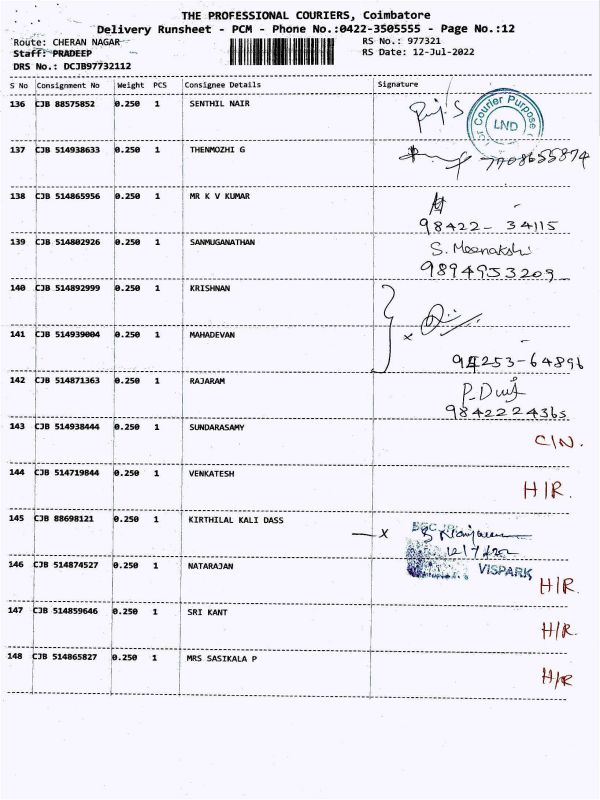 THE PROFESSIONAL COURIERS, Coimbatore
Delivery Runsheet - PCM - Phone No.:0422-3505555 - Page No.:12
Route: CHERAN NAGAR RS No.: 977321
Staff: PRADEEP RS Date: 12-Jul-2022
DRS No.: DCJB97732112
S No Consignment No Weight PCS Consignee Details Signature
136 CJB 88575852 0.250 1 SENTHIL NAIR
Courier Purpose
LND
137 CJB 514938633 0.250 1 THENMOZHI G 7708655874
138 CJB 514865956 0.250 1 MR K V KUMAR
98422- 34115
139 CJB 514802926 0.250 1 SANMUGANATHAN S. Meenakshi
9894953209
140 CJB 514892999 0.250 1 KRISHNAN
141 CJB 514939004 0.250 1 MAHADEVAN x
94253-64896
142 CJB 514871363 0.250 1 RAJARAM
9842224365
143 CJB 514938444 0.250 1 SUNDARASAMY C/N.
144 CJB 514719844 0.250 1 VENKATESH H/R.
145 CJB 88698121 0.250 1 KIRTHILAL KALI DASS x
12/7/22
VISPARK
146 CJB 514874527 0.250 1 NATARAJAN H/R.
147 CJB 514859646 0.250 1 SRI KANT H/R.
148 CJB 514865827 0.250 1 MRS SASIKALA P H/R